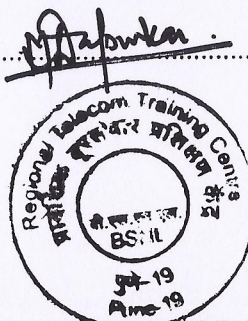 Regional Telecom Training Centre
दूरसंचार प्रशिक्षण केंद्र
बी.एस.एन.एल.
BSNL
पुणे-19
Pune-19